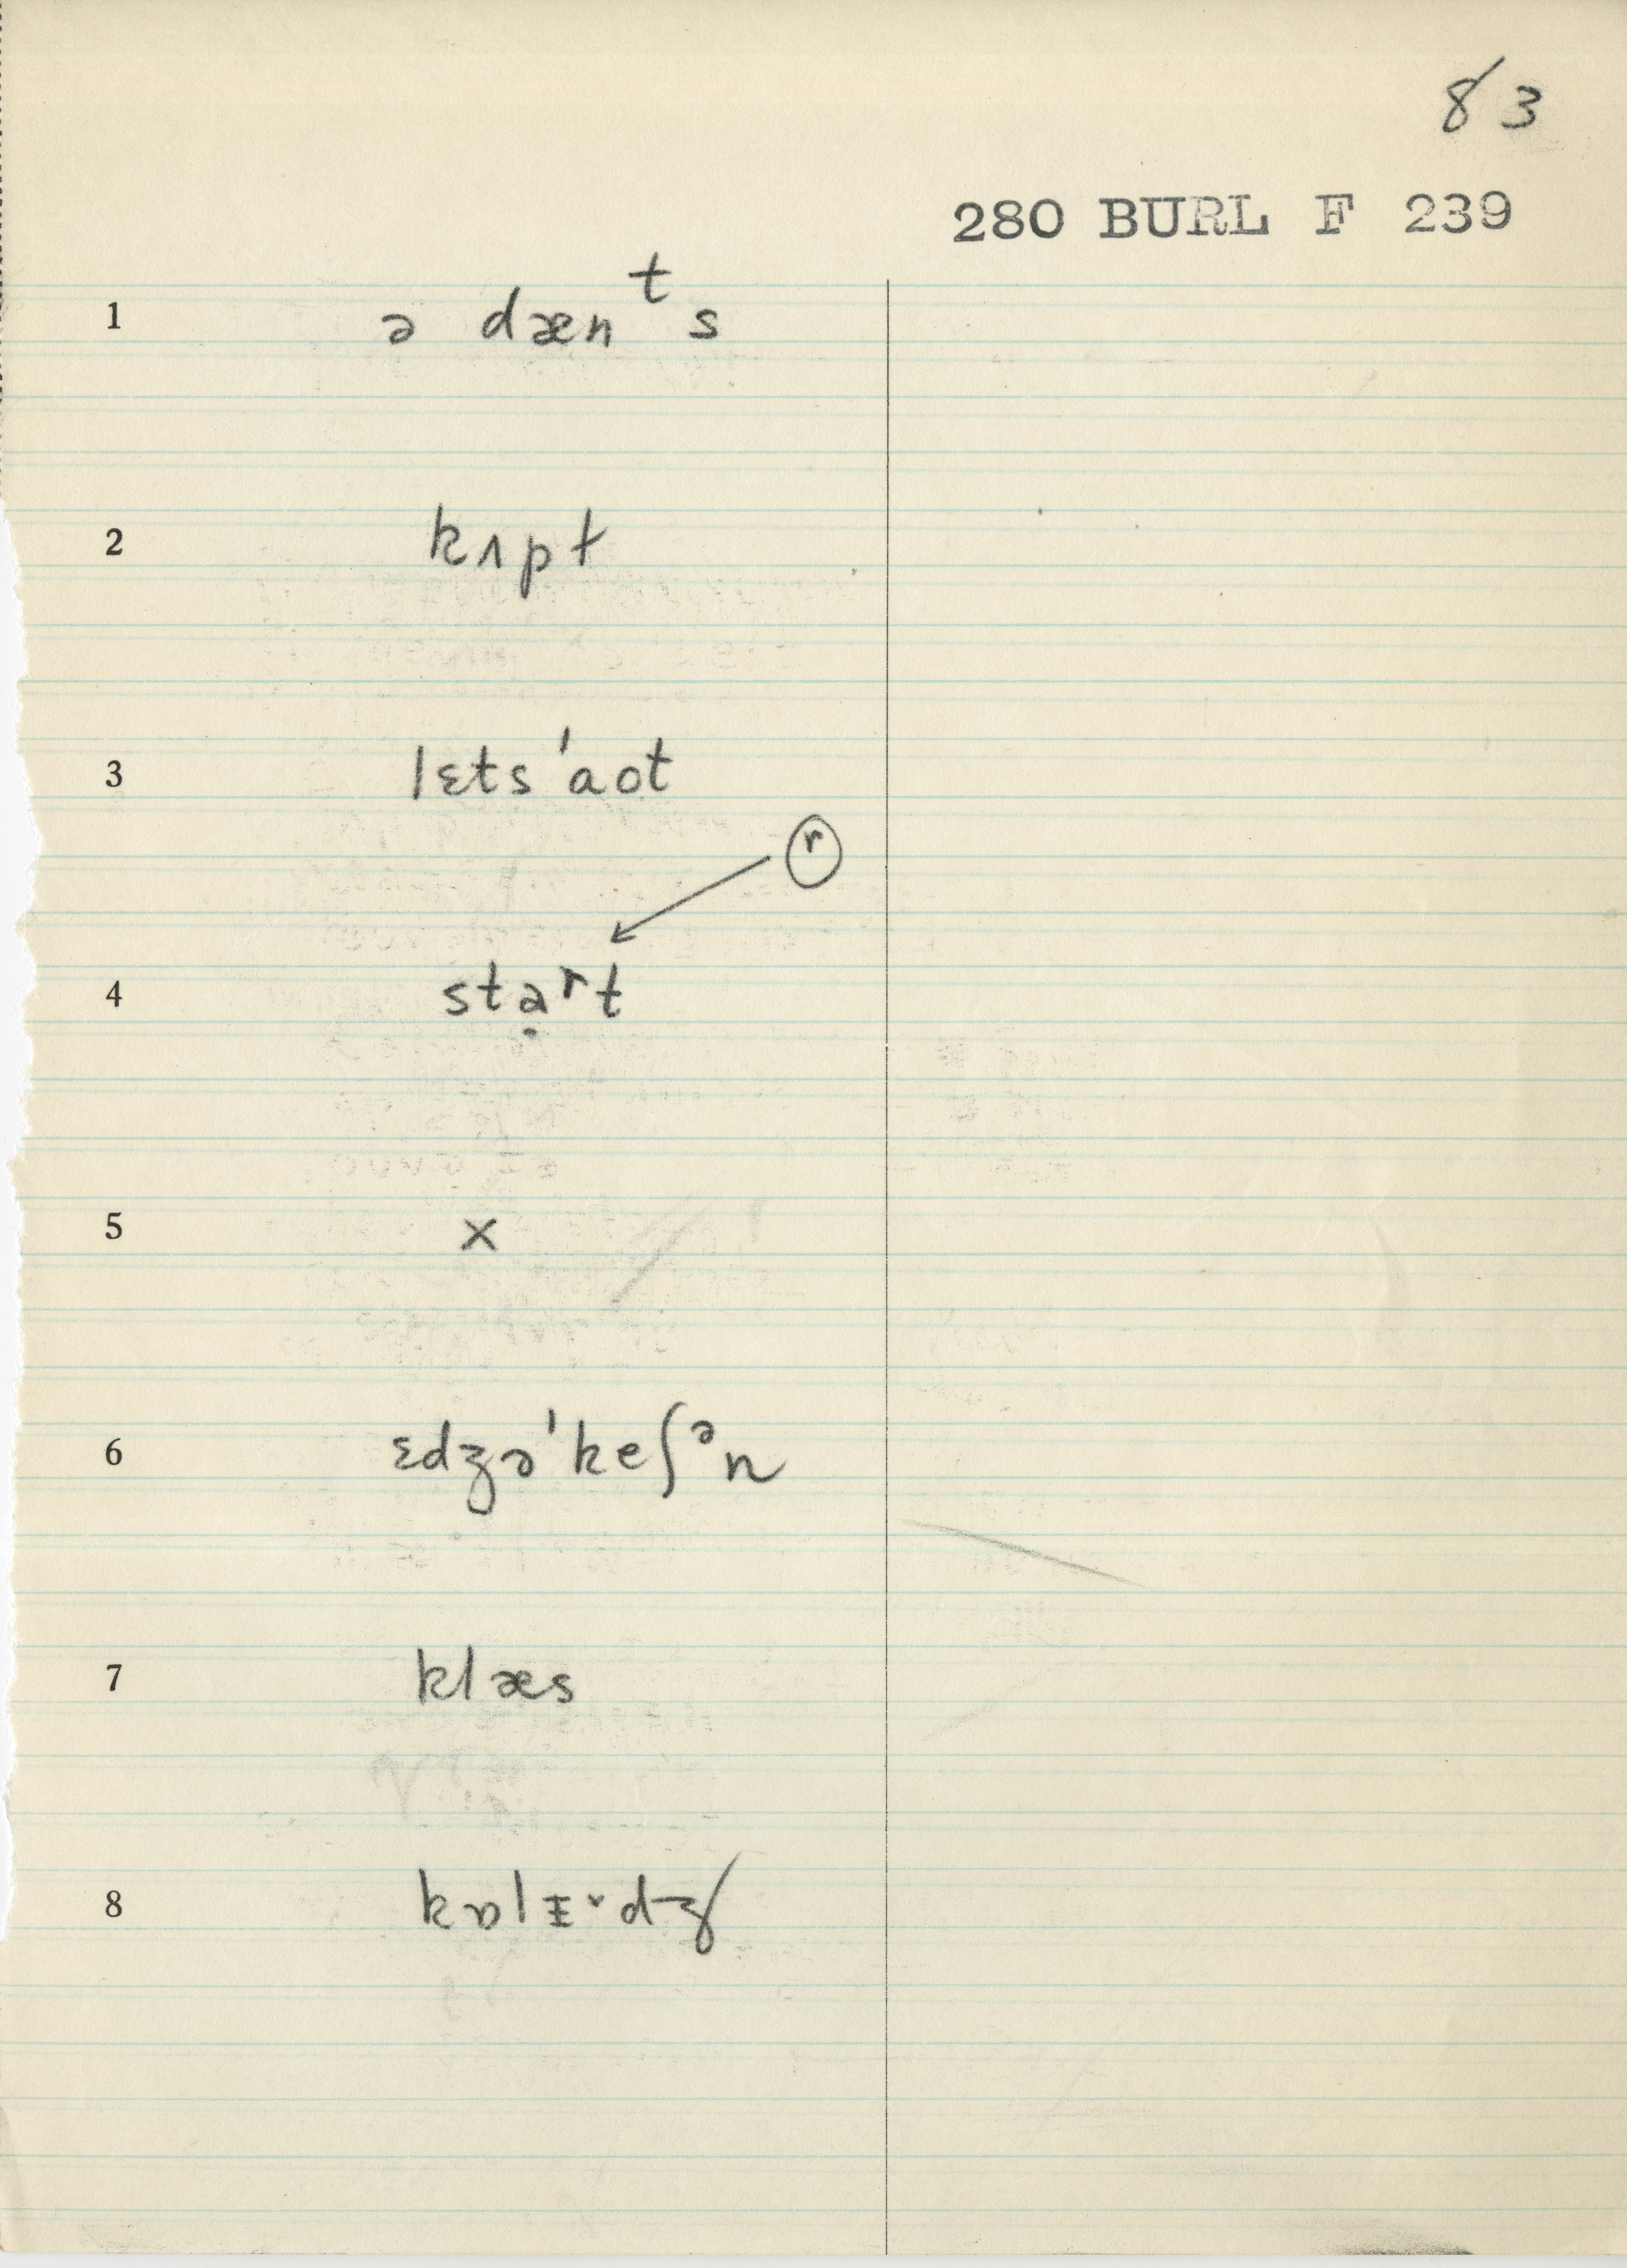 83
280 BURL F 239
1 ə dænᵗs
2 kʌpt
3 lɛts ˈaot
ⓡ
4 stạʳt
5 x
6 ɛdʒəˈkeʃᵊn
7 klæs
8 kɒlɪ̵˅dʒ